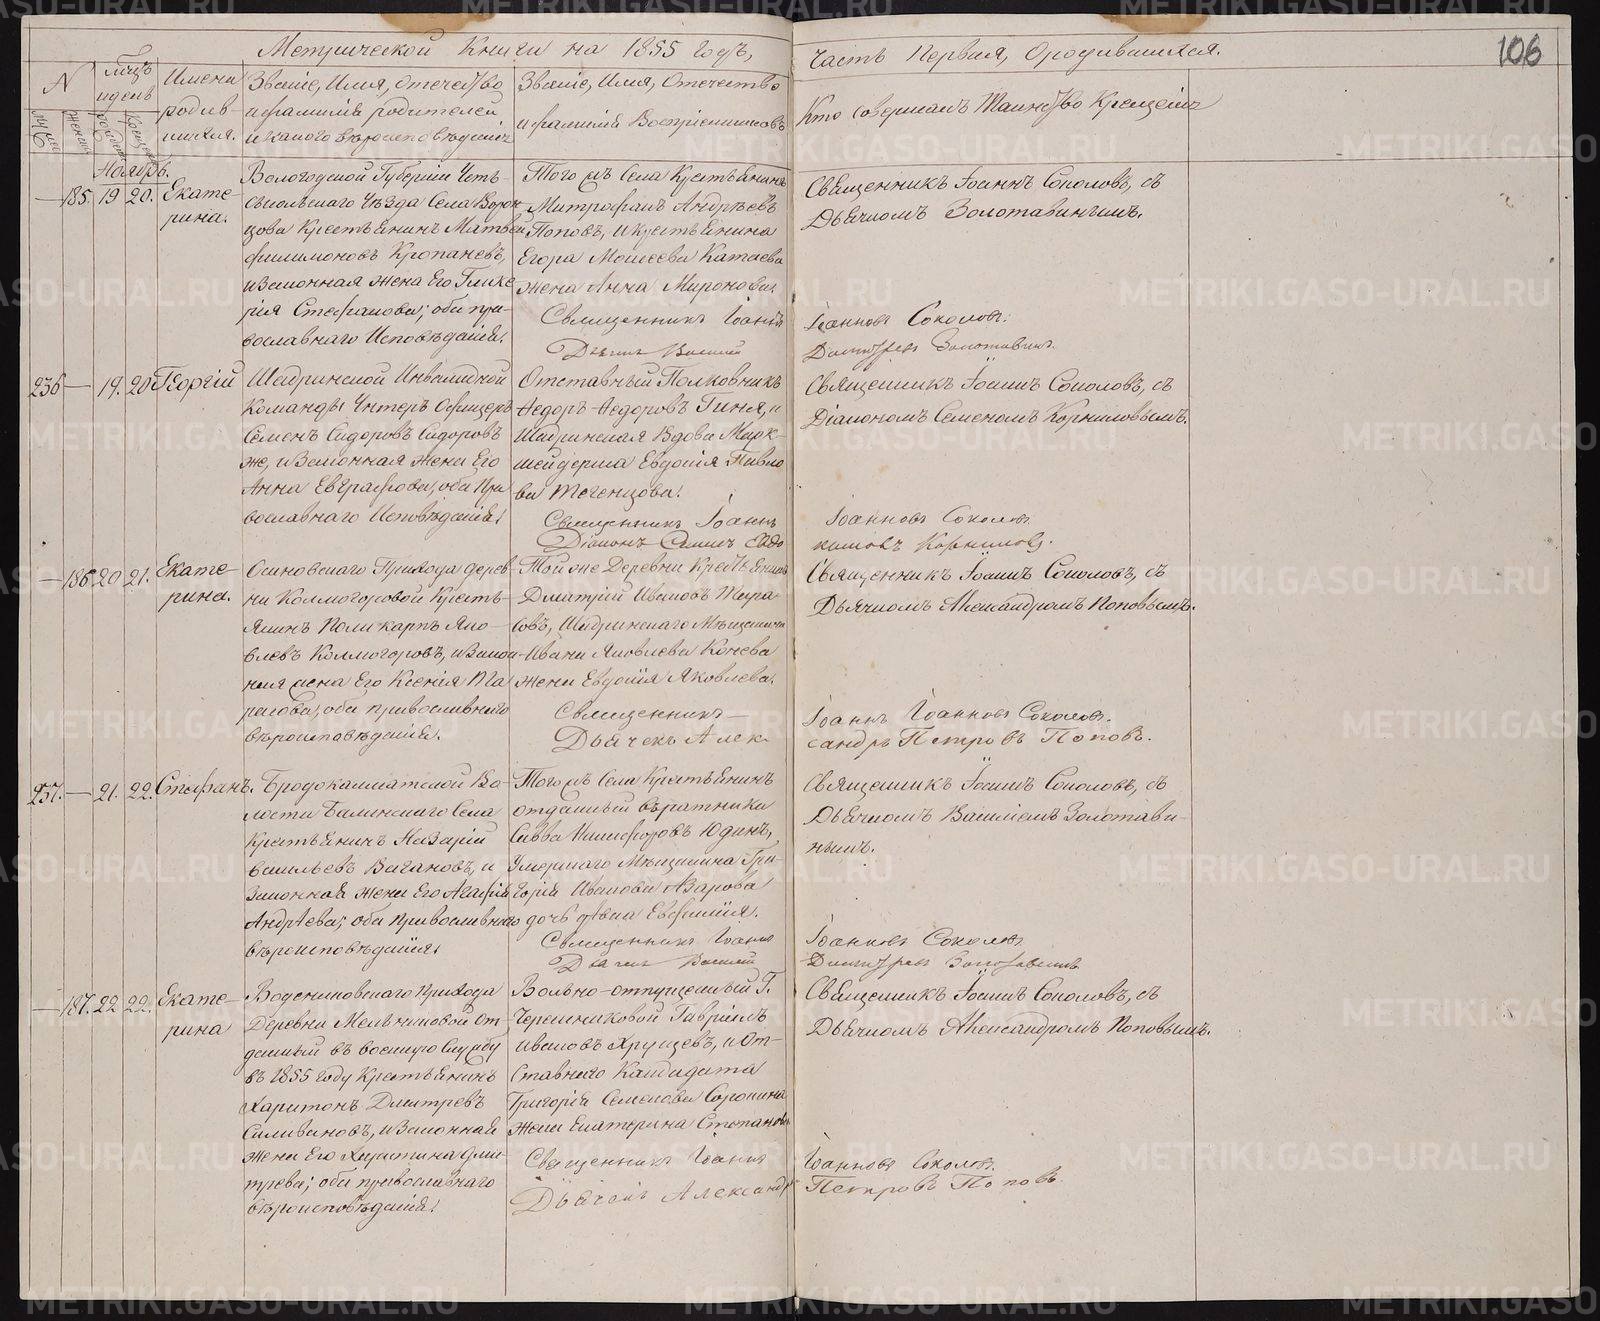 Метрической Книги на 1855 годъ,
Часть Первая, О родившихся.
106
N
Мѣсяцъ и день
Имена родив-
шихся.
Званіе, Имя, Отечество
и фамилія родителей,
и какого вѣроисповѣданія
Званіе, Имя, Отечество
и фамилія Воспріемниковъ
Кто совершалъ Таинство Крещенія
Ноябрь.
185. 19 20. Екате-
рина.
Вологодской Губерніи Усть-
сысольскаго Уѣзда Села
Крестьянинъ Матвей
Филимоновъ Кропаневъ,
и Законная жена Его Глике
рія Стефанова; оба пра-
вославнаго Исповѣданія.
Того жъ Села Крестьянинъ
Митрофанъ Андреевъ
Поповъ, и Крестьянина
Егора Моисеева Катаева
жена Анна Миронова.
Священникъ Іоаннъ
Дьячекъ Василій
Священникъ Іоаннъ Соколовъ, съ
Дьячкомъ Золотавинымъ.
Іоанновъ Соколовъ.
Димитріевъ Золотавинъ.
236 — 19. 20 Георгій
Шадринской Инвалидной
Команды Унтеръ Офицеръ
Семенъ Сидоровъ Сидоровъ
же, и Законная жена Его
Анна Евграфова; оба Пра
вославнаго Исповѣданія.
Отставный Полковникъ
Ѳедоръ Ѳедоровъ Гиня, и
Шадринская Вдова Марк-
шейдерша Евдокія Павло
ва
Священникъ Іоаннъ
Діаконъ Семенъ Евдо
Священникъ Іоаннъ Соколовъ, съ
Діакономъ Семеномъ Корниловымъ.
Іоанновъ Соколовъ
кимовъ Корниловъ.
— 186. 20 21. Екате-
рина.
Осиновскаго Прихода дерев
ни Колмогоровой Кресть-
янинъ Поликарпъ Яко-
влевъ Колмогоровъ, и Закон-
ная жена Его Ксенія Та
расова; оба православнаго
вѣроисповѣданія.
Той же Деревни Крестьянинъ
Дмитрій Ивановъ Тара-
совъ, Шадринскаго Мѣщанина
Ивана Яковлева Конева
жена Евдокія Яковлева.
Священникъ
Дьячекъ Алек-
Священникъ Іоаннъ Соколовъ, съ
Дьячкомъ Александромъ Поповымъ.
Іоаннъ Іоанновъ Соколовъ.
сандръ Петровъ Поповъ.
237. — 21. 22. Стефанъ.
Бродокалматской Во-
лости Села
Крестьянинъ Назарій
Васильевъ Вагановъ, и
Законная жена Его Агафія
Андреева; оба Православнаго
вѣроисповѣданія.
Того жъ Села Крестьянинъ
отданный въ ратники
Савва Никифоровъ Юдинъ,
Умершаго Мѣщанина Гри-
горія Иванова Азарова
дочь дѣвица Евфимія.
Священникъ Іоаннъ
Дьячекъ Василій
Священникъ Іоаннъ Соколовъ, съ
Дьячкомъ Василіемъ Золотави-
нымъ.
Іоанновъ Соколовъ
Димитріевъ Золотавинъ
— 187. 22 22. Екате-
рина
Воденниковскаго Прихода
Деревни Мельниковой От
данный въ военную Службу
въ 1855 году Крестьянинъ
Харитонъ Дмитревъ
Селивановъ, и Законная
жена Его Христина Дми-
трева; оба православнаго
вѣроисповѣданія.
Вольно-отпущенный Г.
Черешниковой Гаврiилъ
Ивановъ Хрущевъ, и От-
ставнаго Кандидата
Григорія Семенова Сорокина
жена Екатерина Степанова
Священникъ Іоаннъ
Дьячекъ Александръ
Священникъ Іоаннъ Соколовъ, съ
Дьячкомъ Александромъ Поповымъ.
Іоанновъ Соколовъ.
Петровъ Поповъ.
METRIKI.GASO-URAL.RU